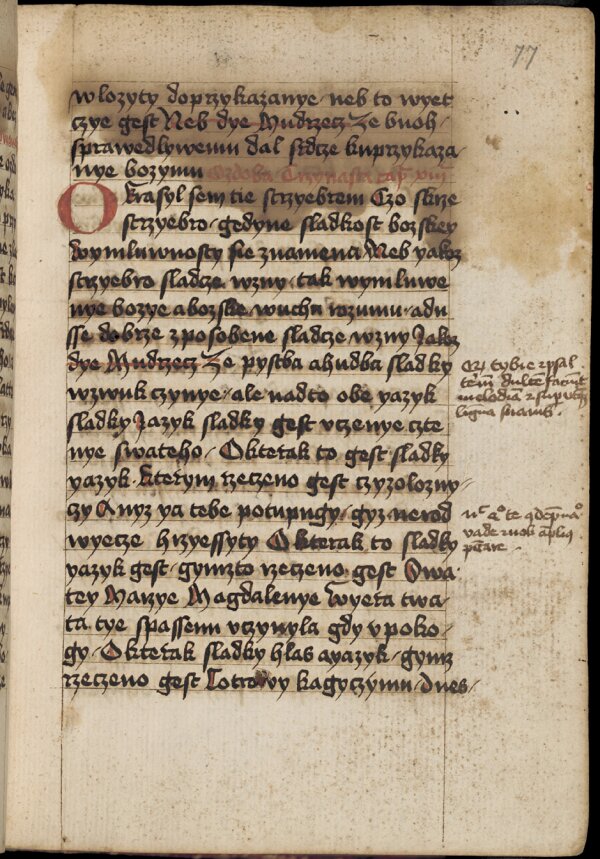 77
wlozyty doprzykazanye neb to wyet
czye gest Neb dye Mudrzecz Ze buoh
sprawedlywemu dal srdcze kuprzykaza-
nye bozymu Ozdoba Trzynasta cap xiii
Okrasyl sem tie strzyebrem Czo skrze
strzyebro gedyne sladkost bozskey
wymluwnosty sie znamena Neb yakoz
strzyebro sladcze wzny tak wymluwe
nye bozye abozske wuchu rozumu adu
sse dobrze zposobene sladcze wzny Jakoz
dye Mudrzecz Ze pystba ahudba sladky
wzwuk czynye ale nadto obe yazyk
sladky Jazyk sladky gest vczenye czte
nye swateho Okterak to gest sladky
yazyk kterym rzeczeno gest czyzolozny
czy Anyz ya tebe potupugy gyz nerod
wyecze hrzyessyty Okterak to sladky
yazyk gest gymzto rzeczeno gest Swa
tey Marzye Magdalenye Wyera twa
ta tye spassenu vczynyla gdy vpoko
gy Okterak sladky hlas ayazyk gymz
rzeczeno gest Lotrowy kagyczymu dnes
tybie psal
dulce faciunt
melodia
ligua suavis
te
vade